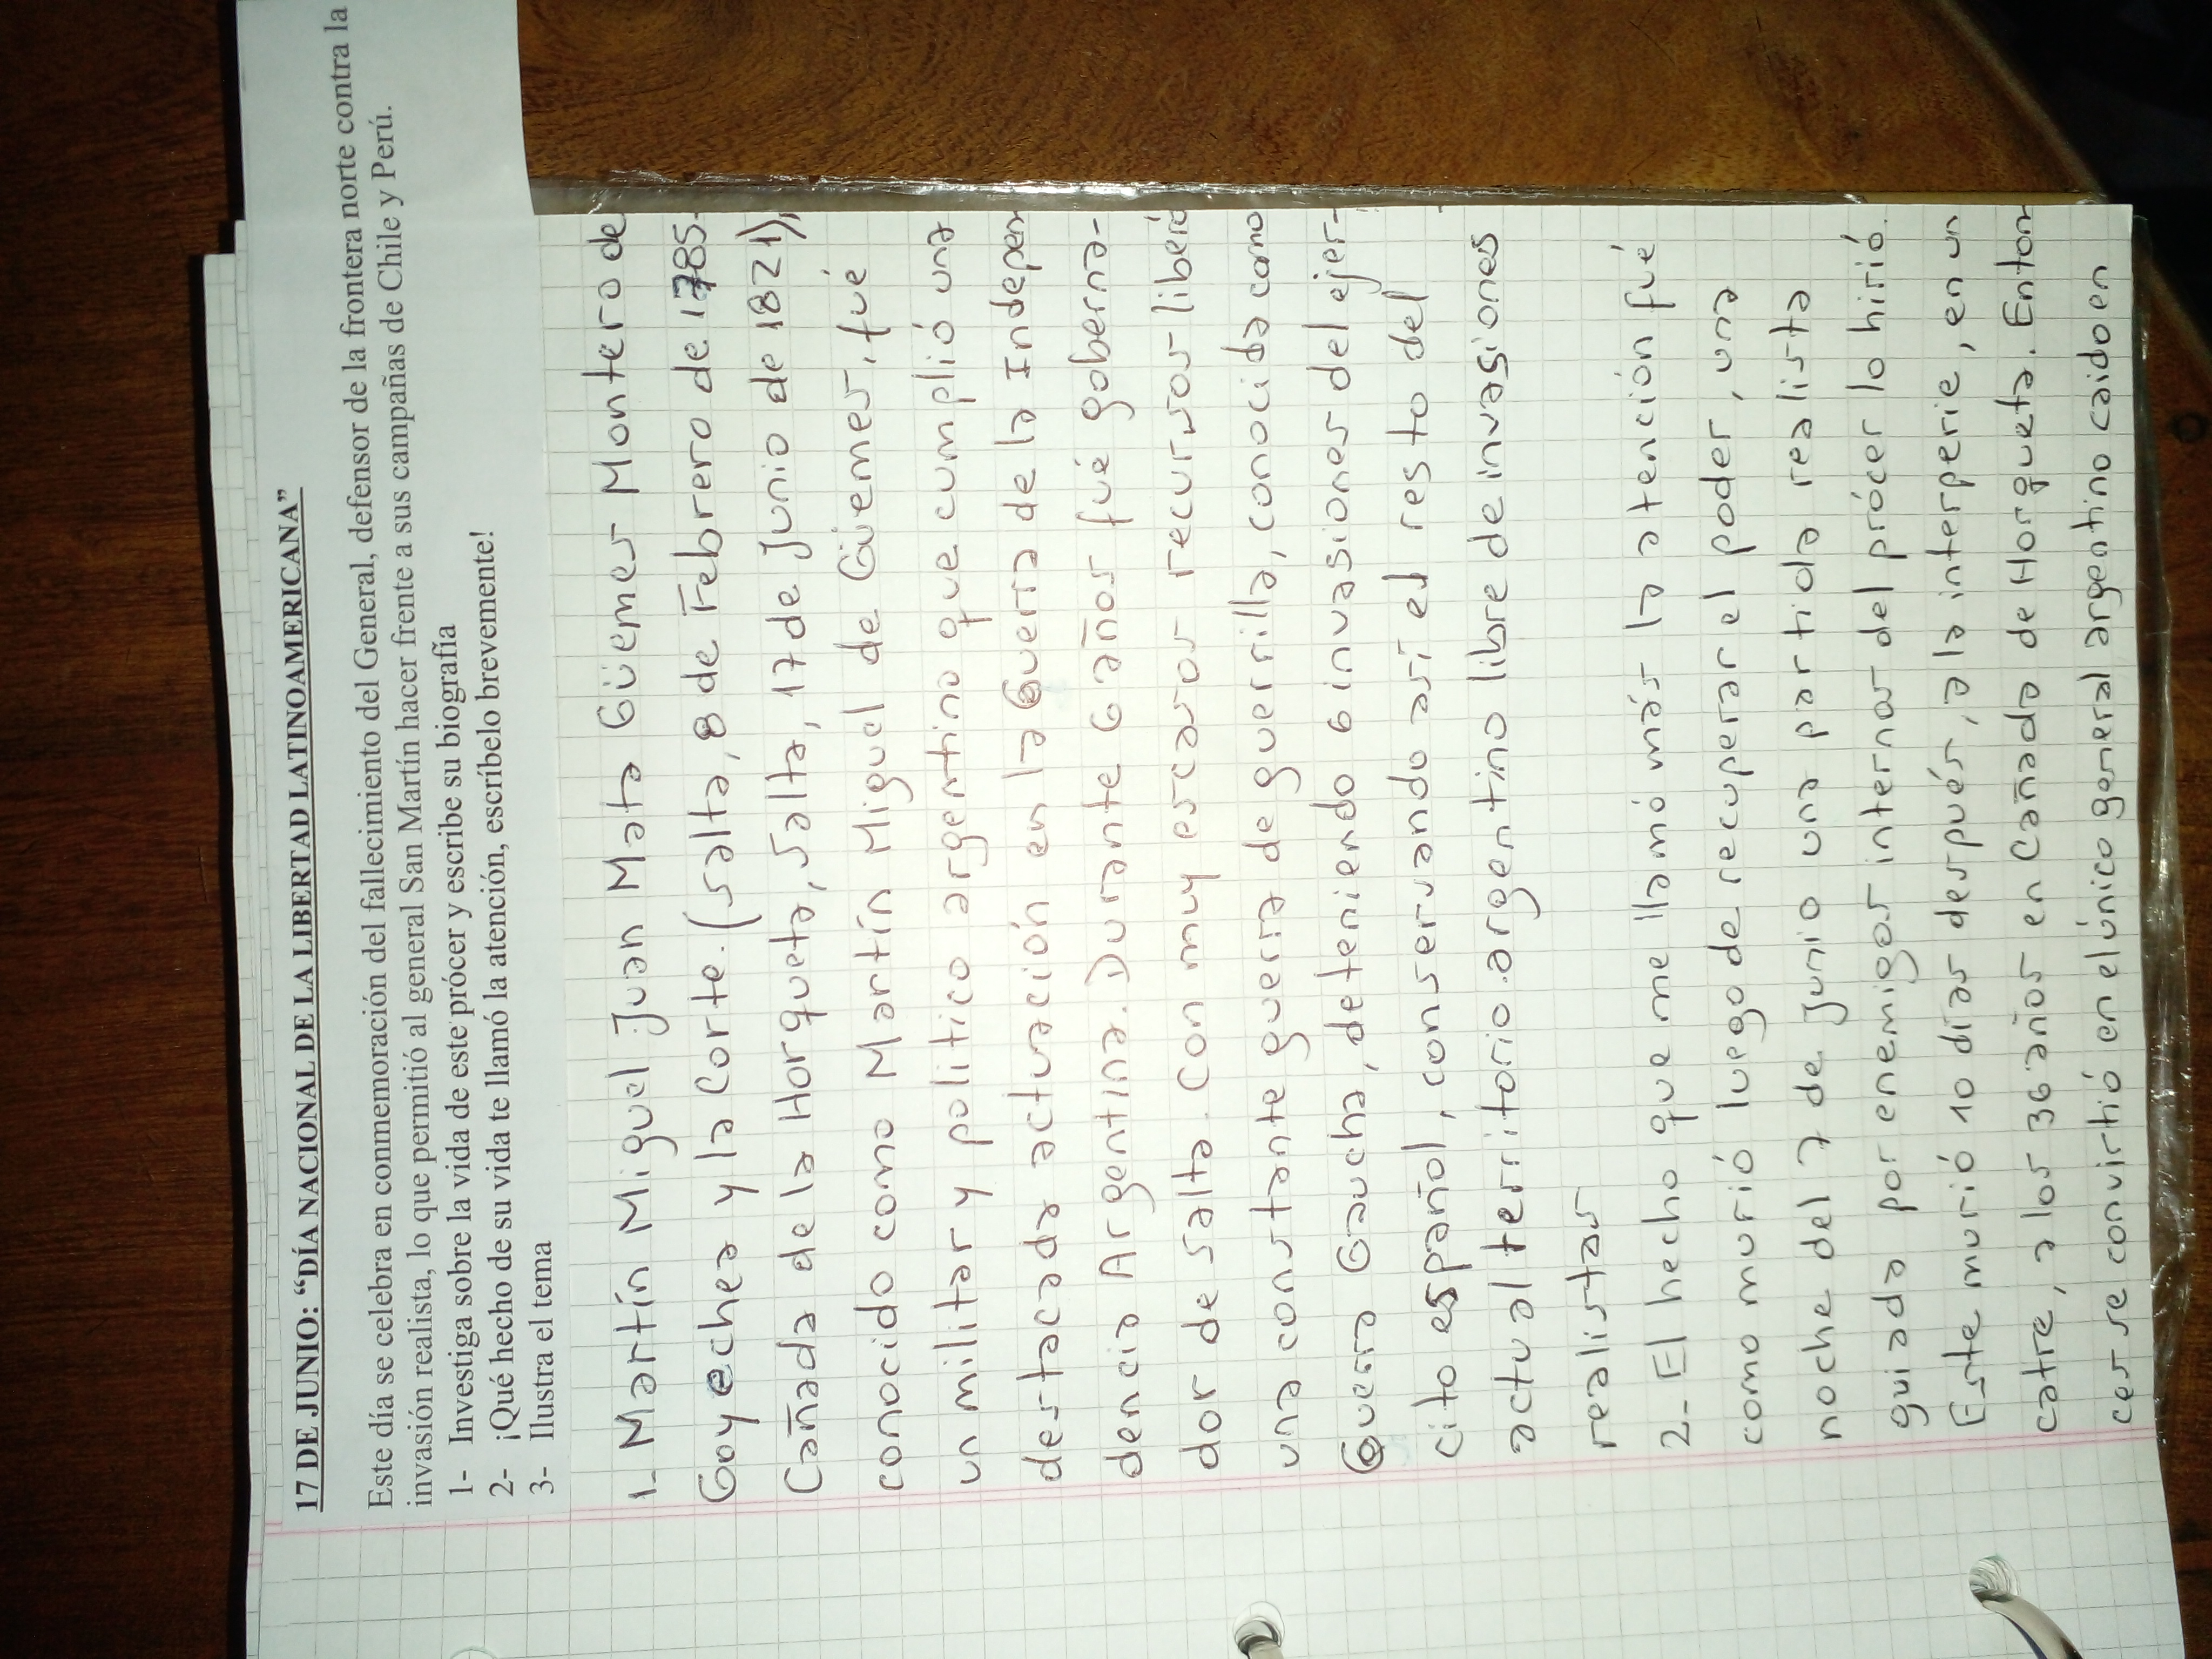 17 DE JUNIO: “DÍA NACIONAL DE LA LIBERTAD LATINOAMERICANA”
Este día se celebra en conmemoración del fallecimiento del General, defensor de la frontera norte contra la
invasión realista, lo que permitió al general San Martín hacer frente a sus campañas de Chile y Perú.
1- Investiga sobre la vida de este prócer y escribe su biografía
2- ¡Qué hecho de su vida te llamó la atención, escríbelo brevemente!
3- Ilustra el tema
1- Martín Miguel Juan Mata Güemes Montero de
Goyechea y la Corte. (Salta, 8 de Febrero de 1785-
Cañada de la Horqueta, Salta, 17 de Junio de 1821),
conocido como Martín Miguel de Güemes, fué
un militar y politico argentino que cumplió una
destacada actuación en la Guerra de la Indepen
dencia Argentina. Durante 6 años fué goberna-
dor de salta. Con muy escasos recursos liberó
una constante guerra de guerrilla, conocida como
Guerra Gaucha, deteniendo 6 invasiones del ejer-
cito español, conservando así el resto del
actual territorio argentino libre de invasiones
realistas
2- El hecho que me llamó más la atención fué
como murió luego de recuperar el poder, una
noche del 7 de junio una partida realista
guiada por enemigos internos del prócer lo hirió.
Este murió 10 días después, a la interperie, en un
catre, a los 36 años en Cañada de Horqueta. Enton
ces se convirtió en el único general argentino caido en